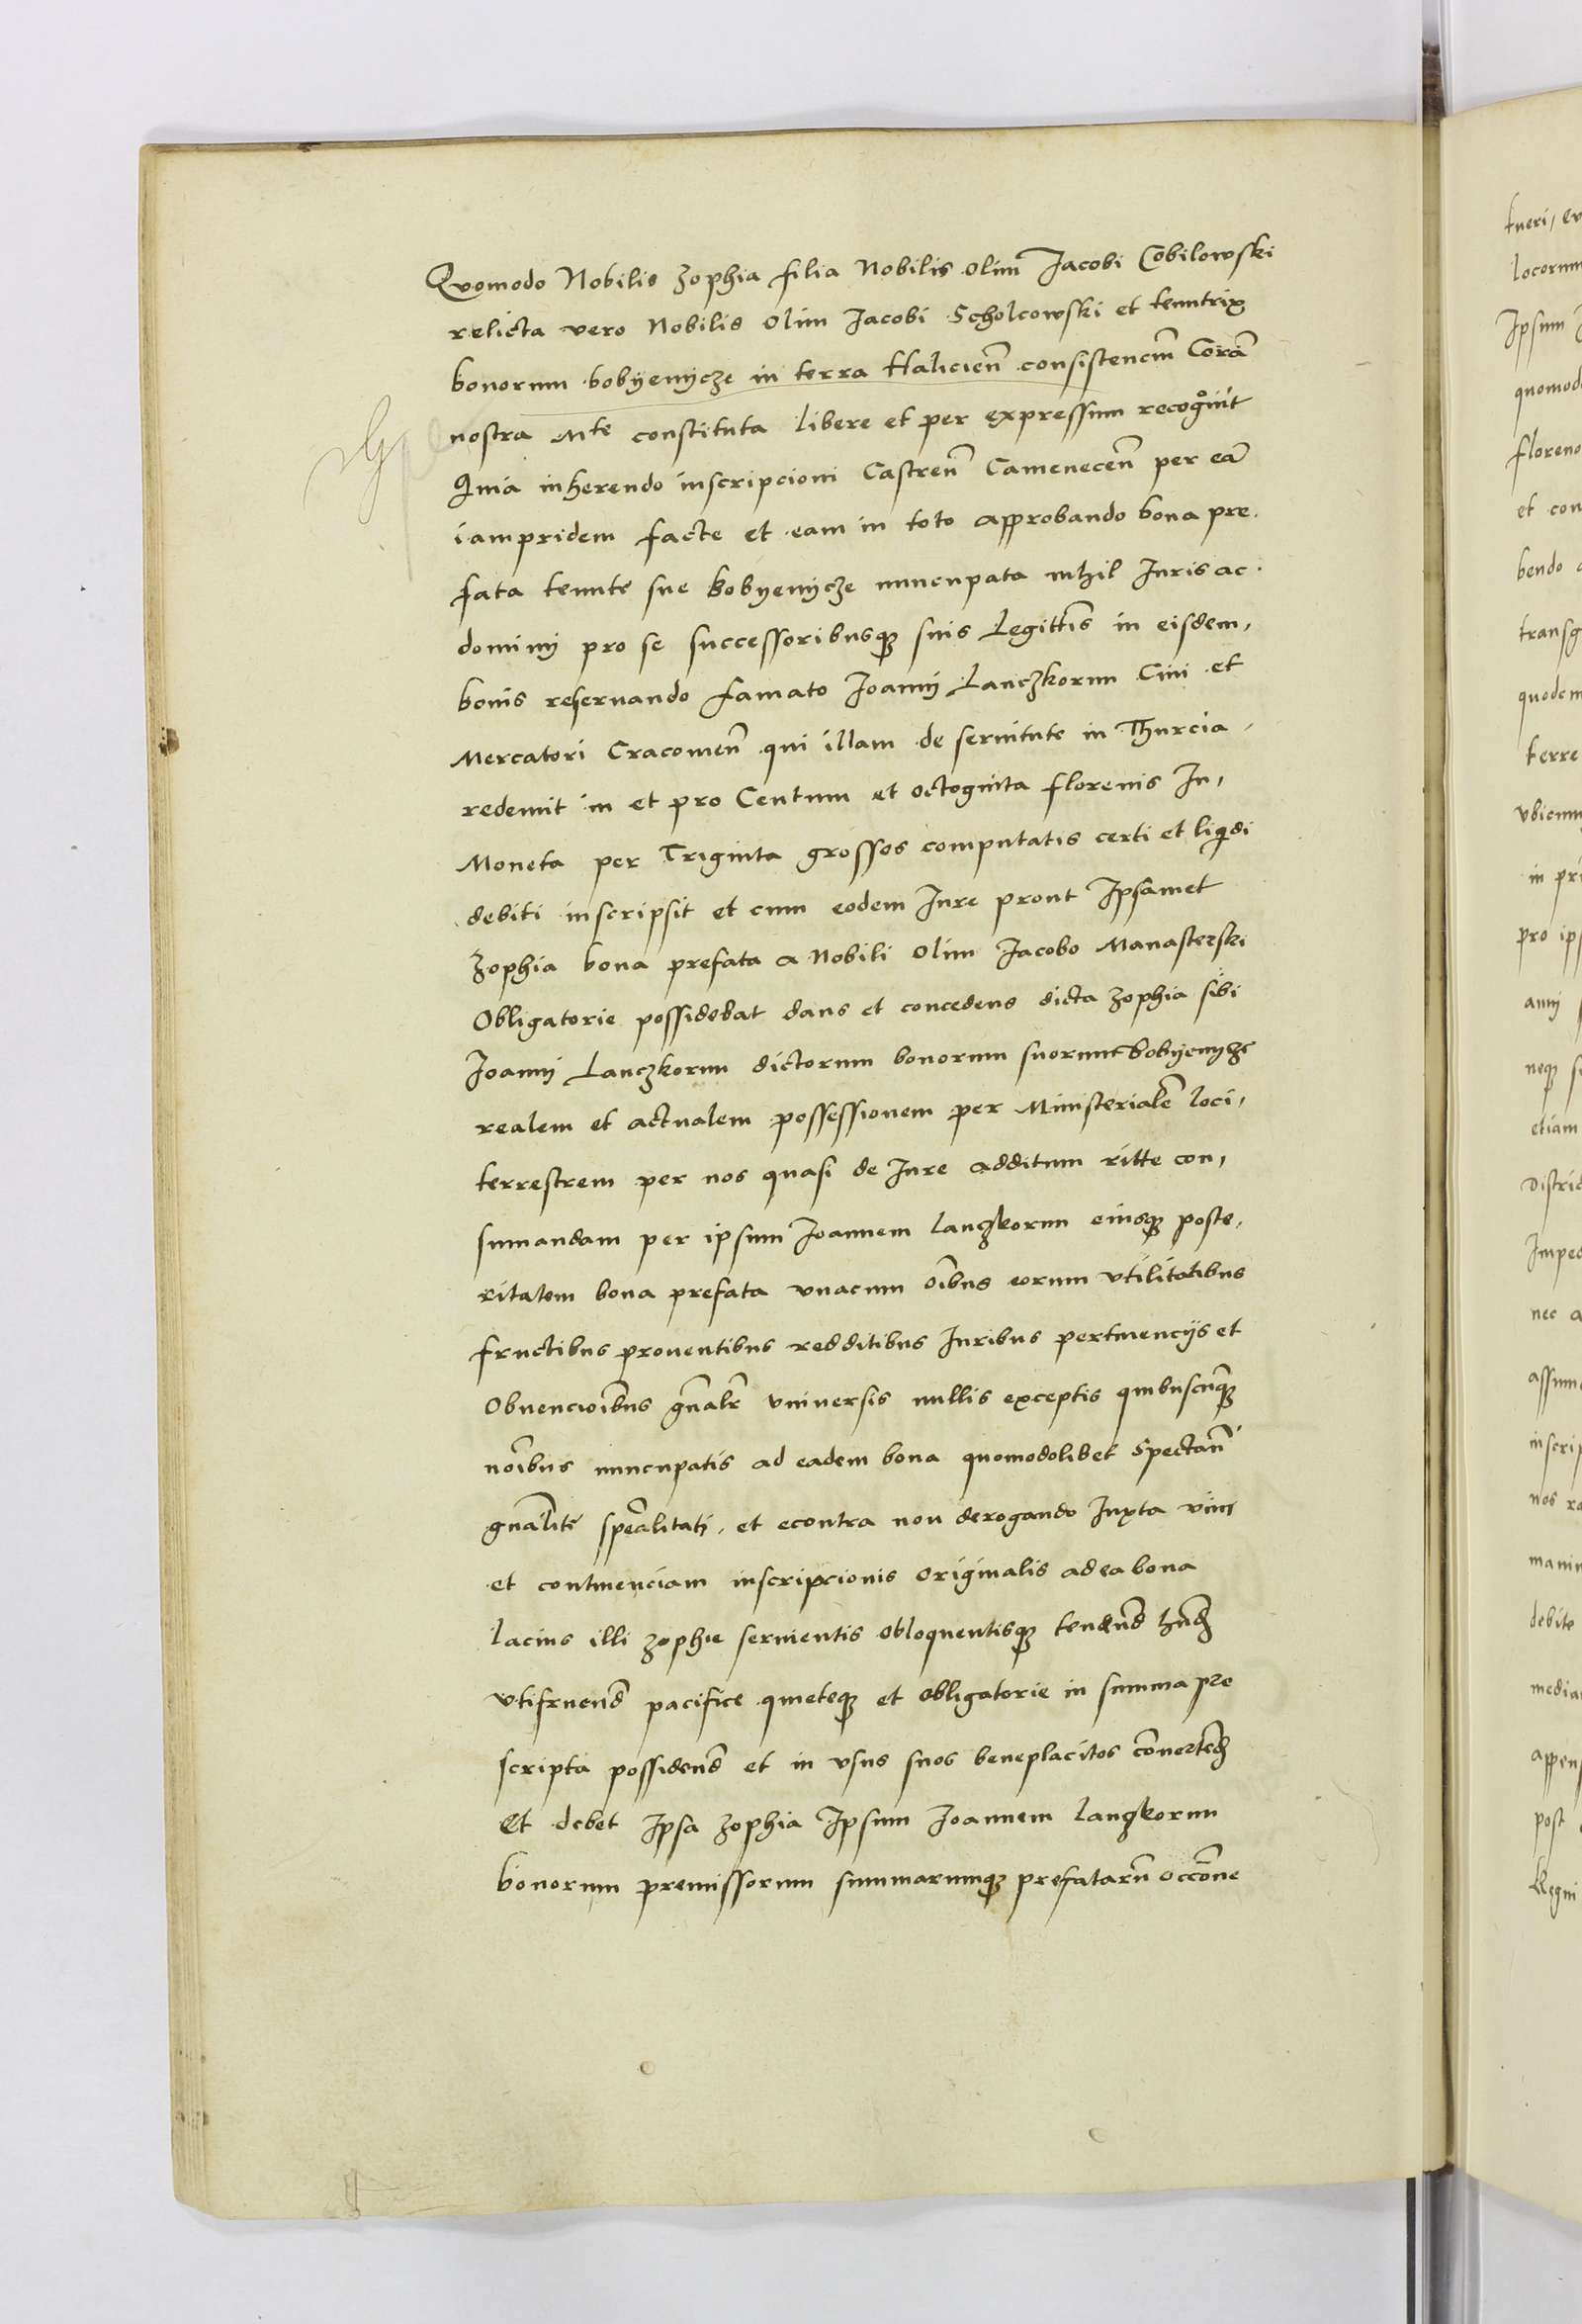 Quomodo Nobilis Zophia filia Nobilis olim Jacobi Cobilowski
relicta vero Nobilis olim Jacobi Scholcowski et tenutrix
bonorum bobyemycze in terra Halicien̄ consistencm̄ Corā
nostra Mte constituta libere et per expressum recognovit
Quia inherendo inscripcioni Castren̄ Camenecen̄ per eā
iampridem facte et eam in toto approbando bona pre.
fata tenute sue bobyemycze nuncupata nihil Juris ac
dominij pro se successoribusqȝ suis Legittīs in eisdem,
bonis reservando famato Joanni Lanczkorun Civi et
Mercatori Cracovien̄ qui illam de servitute in Thurcia
redemit in et pro Centum et octoginta florenis In,
Moneta per Triginta grossos computatis certi et liqidi
debiti inscripsit et cum eodem Jure prout Ipsamet
Zophia bona prefata a Nobili olim Jacobo Manasterski
Obligatorie possidebat dans et concedens dicta Zophia sibi
Joanni Lanczkorun dictorum bonorum suorum bobyemycze
realem et actualem possessionem per Ministerialē loci,
terrestrem per nos quasi de Jure additum ritte con,
sumandam per ipsum Joannem lanczkorun eiusqȝ poste,
ritatem bona prefata unacum oībus eorum utilitatibus
fructibus proventibus redditibus Juribus pertinencijs et
Obvencioībus gn̄alr̄ universis nullis exceptis quibuscūqȝ
noībus nuncupatis ad eadem bona quomodolibet Spectan̄
gn̄alitī spēalitati, et econtra non derogando Juxta vim
et continenciam inscripcionis originalis ad ea bona
lacius illi Zophie servientis obloquentisqȝ tenend̄ hn̄d
utifruend̄ pacifice quieteqȝ et obligatorie in summa pre
scripta possidend̄ et in usus suos beneplacitos cōvertēd
Et debet Ipsa Zophia Ipsum Joannem lanczkorun
bonorum premissorum summarumqȝ prefatarū occōne